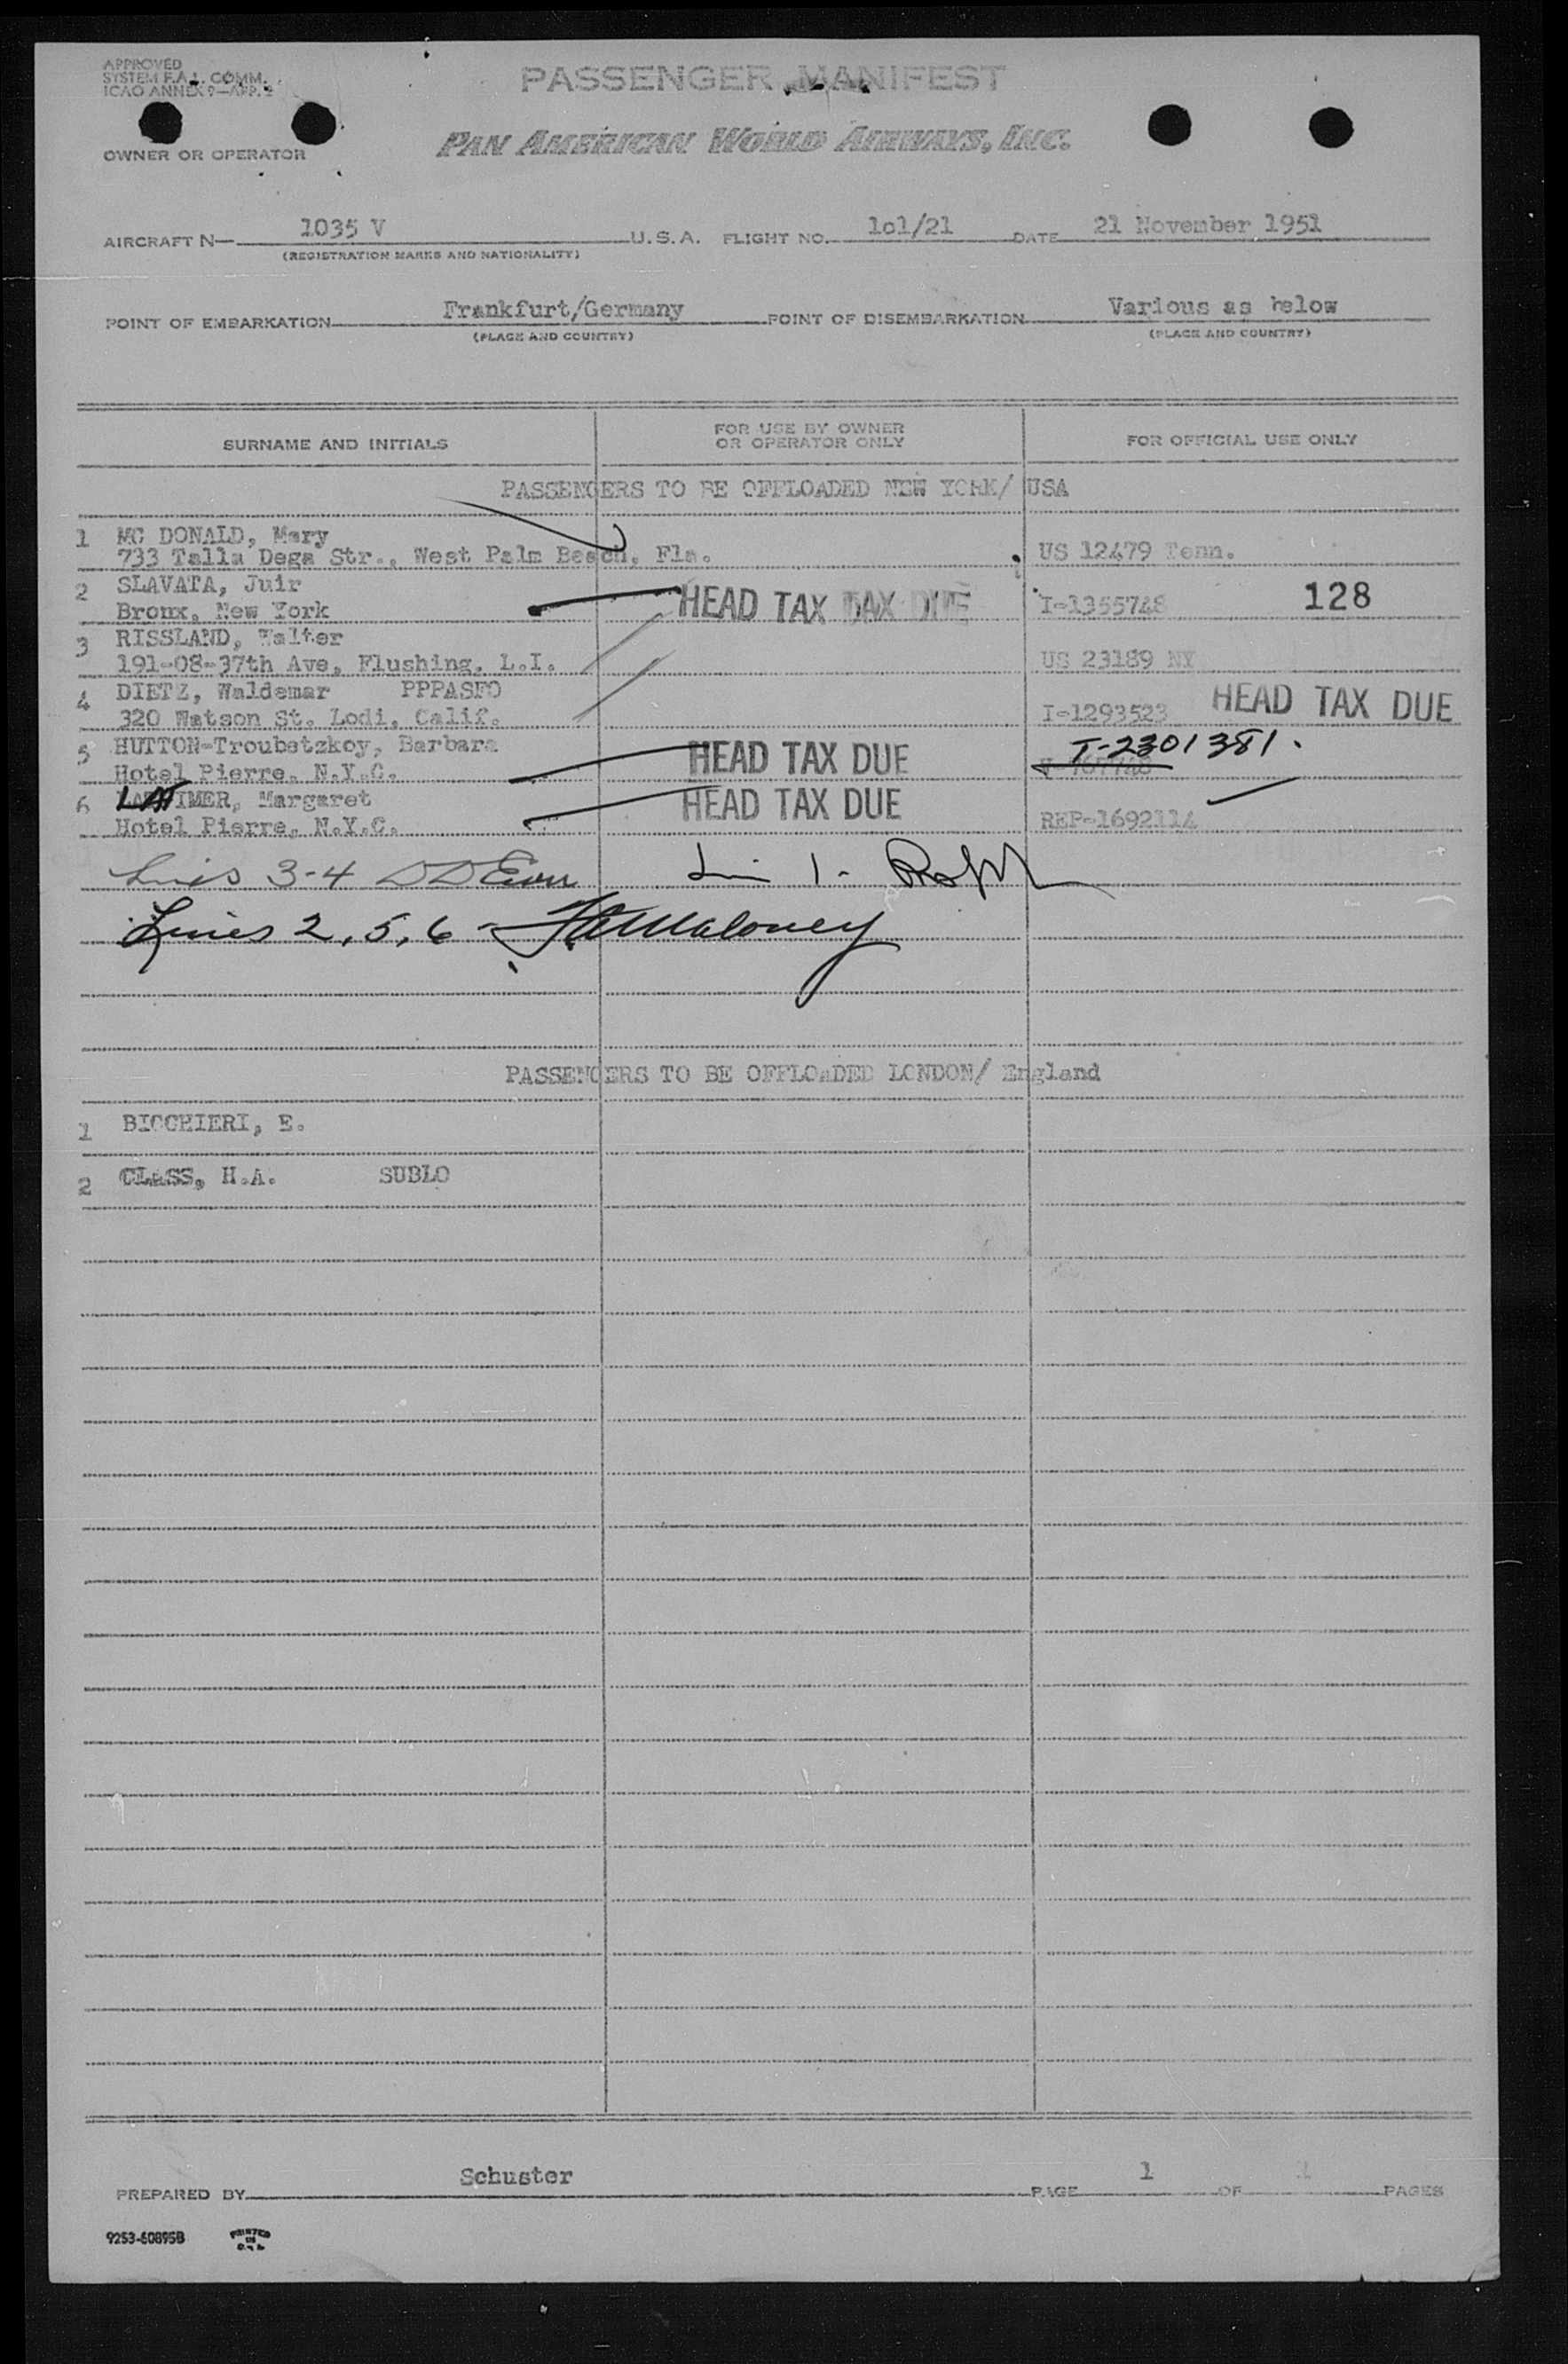 APPROVED
SYSTEM F.A.L. COMM.
ICAO ANNEX 9—APP. 2
PASSENGER MANIFEST
OWNER OR OPERATOR
PAN AMERICAN WORLD AIRWAYS, INC.
AIRCRAFT N— 1035 V U.S.A. FLIGHT NO. 1o1/21 DATE 21 November 1951
(REGISTRATION MARKS AND NATIONALITY)
POINT OF EMBARKATION Frankfurt/Germany POINT OF DISEMBARKATION Various as below
(PLACE AND COUNTRY) (PLACE AND COUNTRY)
SURNAME AND INITIALS FOR USE BY OWNER OR OPERATOR ONLY FOR OFFICIAL USE ONLY
PASSENGERS TO BE OFFLOADED NEW YORK/ USA
1 MC DONALD, Mary
733 Talla Dega Str., West Palm Beach, Fla. US 12479 Tenn.
2 SLAVATA, Juir
Bronx, New York HEAD TAX TAX DUE I-1355748 128
3 RISSLAND, Walter
191-08-37th Ave, Flushing, L.I. US 23189 NY
4 DIETZ, Waldemar PPPASFO
320 Watson St. Lodi, Calif. I-1293523 HEAD TAX DUE
5 HUTTON-Troubetzkoy, Barbara HEAD TAX DUE T-2301381.
Hotel Pierre, N.Y.C.
6 LATIMER, Margaret HEAD TAX DUE
Hotel Pierre, N.Y.C. REP-1692114
Lines 3-4 Lin 1-
Lines 2, 5, 6 - Maloney
PASSENGERS TO BE OFFLOADED LONDON/ England
1 BICCHIERI, E.
2 CLASS, H.A. SUBLO
PREPARED BY Schuster PAGE 1 OF 1 PAGES
9253-60895B PRINTED IN U.S.A.